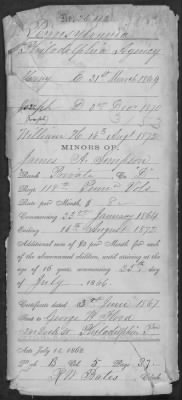 No. 78,112
Pennsylvania
Philadelphia Agency
Harry C 21st March 1864
Joseph P 2nd Nov 1870
(Joseph) 3153
William H 16th Augt 1872
MINORS OF
James A. Simpson
Rank Private Co "D"
Regt. 118th Penna Vols
Rate per Month $ 8
Commencing 22nd January 1864
Ending 16th August 1872
Additional sum of $2 per Month for each
of the abovenamed children, until arriving at the
age of 16 years, commencing 25th day
of July, 1866.
Certificate dated 3rd June 1867
Sent to George W. Ford
Philadelphia
Acts July 14 1862
Page B Vol. 5 Page 37
R M Bales Clerk